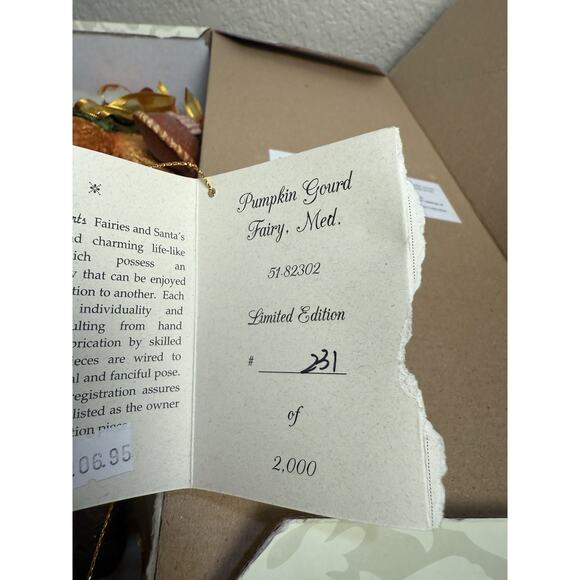 rts Fairies and Santa's
d charming life-like
ich possess an
that can be enjoyed
tion to another. Each
individuality and
ulting from hand
brication by skilled
ieces are wired to
al and fanciful pose.
registration assures
listed as the owner
tion piece.
.06.95
Pumpkin Gourd
Fairy, Med.
51-82302
Limited Edition
# 231
of
2,000